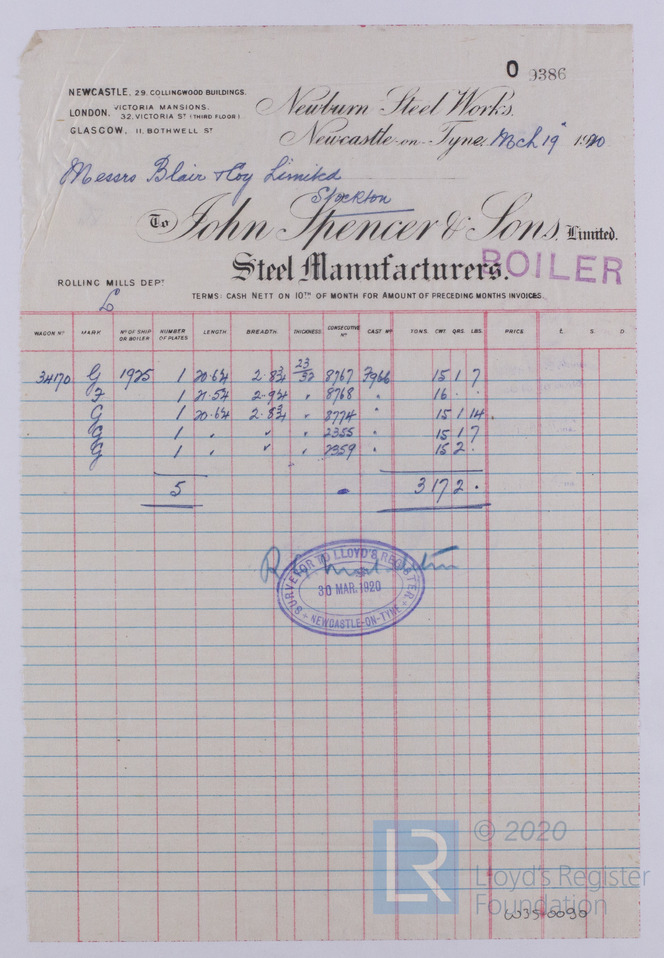 O 9386
NEWCASTLE, 29. COLLINGWOOD BUILDINGS.
LONDON, VICTORIA MANSIONS. 32, VICTORIA ST (THIRD FLOOR)
GLASGOW, 11, BOTHWELL ST
Newburn Steel Works.
Newcastle-on-Tyne, Mch 19th 1920
Messrs Blair & Coy Limited
Stockton
To John Spencer & Sons, Limited.
Steel Manufacturers.
BOILER
ROLLING MILLS DEPT
TERMS: CASH NETT ON 10TH OF MONTH FOR AMOUNT OF PRECEDING MONTHS INVOICES.
WAGON No MARK No OF SHIP OR BOILER NUMBER OF PLATES LENGTH BREADTH. THICKNESS CONSECUTIVE No CAST No TONS. CWT. QRS. LBS. PRICE £. S. D
34170 G 1925 1 20.6¼ 2.8¾ 23/32 8767 7966 15 1 7
F 1 21.5¼ 2.9¼ " 8768 16 . .
G 1 20.6¼ 2.8¾ " 8774 " 15 1 14.
G 1 " " " 2355 " 15 1 7
G 1 " " " 2359 " 15 2 .
5 " 3 17 2 .
SURVEYOR TO LLOYD'S REGISTER
30 MAR. 1920
NEWCASTLE-ON-TYNE
LR © 2020
Lloyd's Register
Foundation
W35-0090